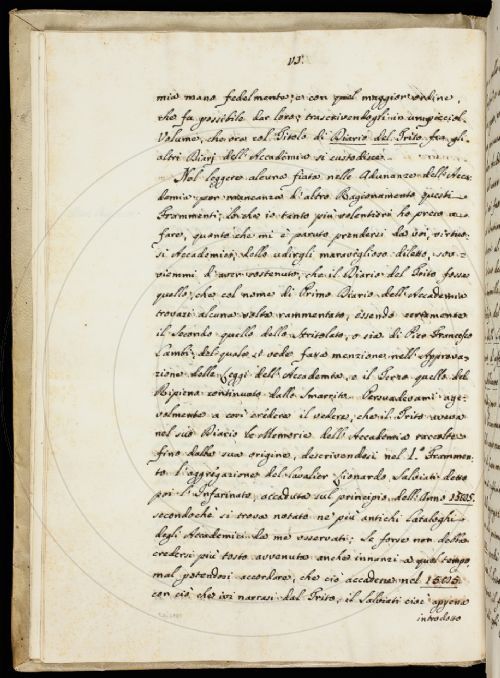 VI.
mia mano fedelmente, e con quel maggior ordine,
che fu possibile dar loro, trascrivendogli in un piccol
Volume, che ora col Titolo di Diario del Trito fra gli
altri Diarj dell'Accademia si custodisce.
Nel leggere alcuna fiata nelle Adunanze dell'Acca-
demia per mancanza d'altro Ragionamento questi
Frammenti; lo che io tanto più volentieri ho preso a
fare, quanto che mi è paruto prendersi da voi, virtuo-
si Accademici, dello udirgli maraviglioso diletto, sov-
viemmi d'aver sostenuto, che il Diario del Trito fosse
quello, che col nome di Primo Diario dell'Accademia
trovasi alcuna volta rammentato, essendo certamente
il Secondo quello dello Stritolato, o sia di Pier Francesco
Cambi; del quale si vede fare menzione nell'Approva-
zione delle Leggi dell'Accademia, e il Terzo quello del
Ripieno continuato dallo Smarrito. Persuadevami age-
volmente a così credere il vedere, che il Trito aveva
nel suo Diario le Memorie dell'Accademia raccolte
fino dalla sua origine, descrivendosi nel I.º Frammen-
to l'aggregazione del Cavalier Lionardo Salviati detto
poi l'Infarinato, accaduta sul principio dell'Anno
secondochè si trova notato ne' più antichi Cataloghi
degli Accademici da me osservati; Se forse non debba
credersi più tosto avvenuta anche innanzi a quel tempo,
mal potendosi accordare, che ciò accadesse nel
con ciò che ivi narrasi dal Trito, il Salviati cioè appena
introdotto